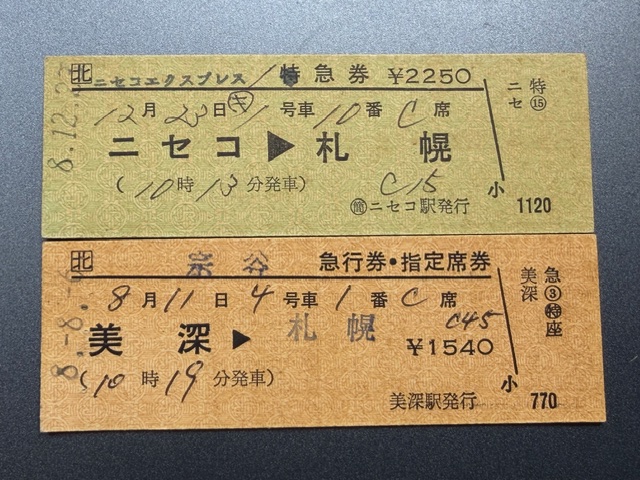 北 ニセコエクスプレス 1 特急券 ¥2250
12月23日 キ 1号車 10番 C席
ニセコ ▶ 札 幌
(10時13分発車) C15
簡 ニセコ駅発行
8.12.23
特 ニセ ⑮
小 1120
北 宗谷 急行券・指定席券
8月11日 4号車 1番 C席
美 深 ▶ 札 幌 C45
¥1540
(10時19分発車)
美深駅発行
8.-8.
急 美深 ③ 特 座
小 770